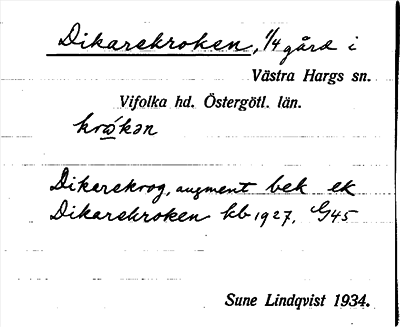 Dikarekroken, 1/4 gård i
Västra Hargs sn.
Vifolka hd. Östergötl. län.
krǿkən
Dikarekrog, augment bek ek
Dikarekroken kb 1927, G45
Sune Lindqvist 1934.